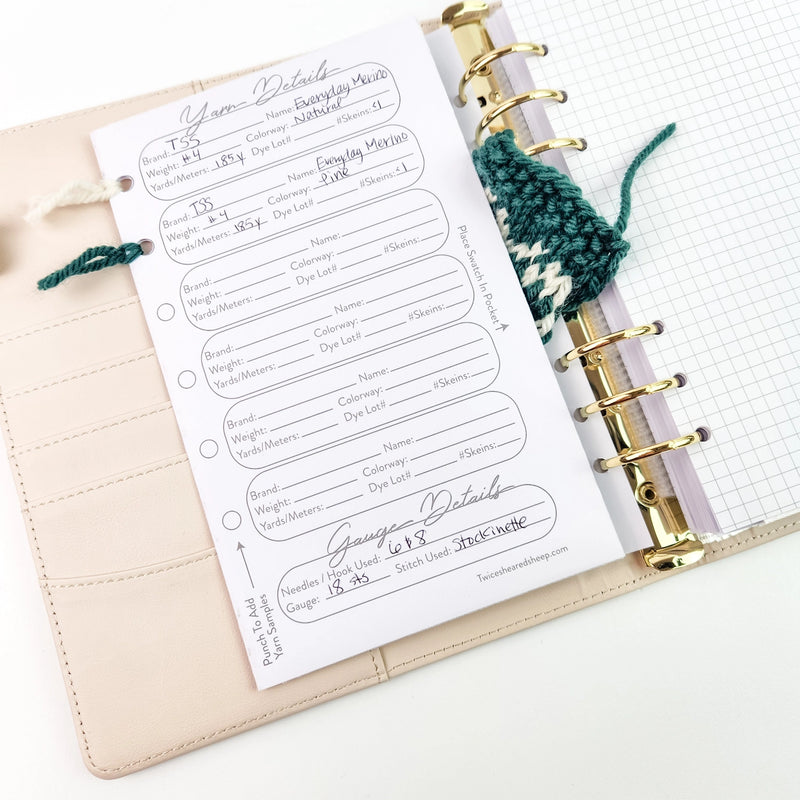 Yarn Details
Brand: TSS Name: Everyday Merino
Weight: #4 Colorway: Natural
Yards/Meters: 185y Dye Lot# #Skeins: <1
Brand: TSS Name: Everyday Merino
Weight: #4 Colorway: Pine
Yards/Meters: 185y Dye Lot# #Skeins: <1
Brand: Name:
Weight: Colorway:
Yards/Meters: Dye Lot# #Skeins:
Brand: Name:
Weight: Colorway:
Yards/Meters: Dye Lot# #Skeins:
Brand: Name:
Weight: Colorway:
Yards/Meters Dye Lot# #Skeins:
Brand: Name:
Weight: Colorway:
Yards/Meters: Dye Lot# #Skeins:
Place Swatch In Pocket
Gauge Details
Needles / Hook Used: 6 & 8
Gauge: 18 sts Stitch Used: Stockinette
Twiceshearedsheep.com
Punch To Add
Yarn Samples